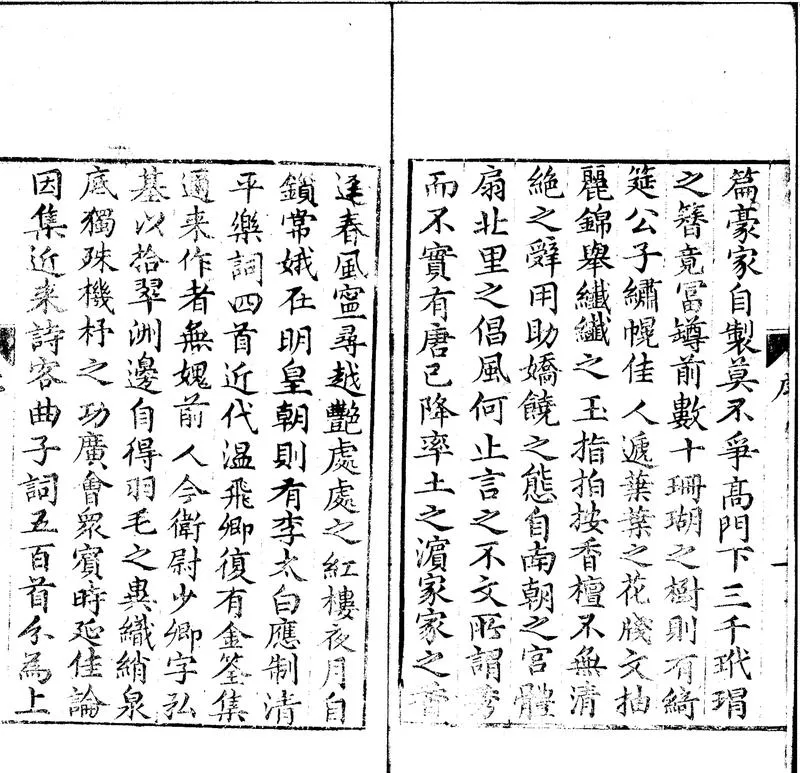 篇豪家自製莫不爭髙門下三千玳瑁
之簪竟富罇前數十珊瑚之樹則有綺
筵公子繡幌佳人遞葉葉之花牋文抽
麗錦舉纖纖之玉指拍按香檀不無清
絶之辭用助嬌饒之態自南朝之宮體
扇北里之倡風何止言之不文所謂秀
而不實有唐已降率土之濱家家之香
逕春風寧尋越艷處處之紅樓夜月自
鎖常娥在明皇朝則有李太白應制清
平樂詞四首近代温飛卿復有金筌集
邇來作者無媿前人今衛尉少卿字弘
基以拾翠洲邊自得羽毛之異織綃泉
底獨殊機杼之功廣會衆賓時延佳論
因集近来詩客曲子詞五百首分為上